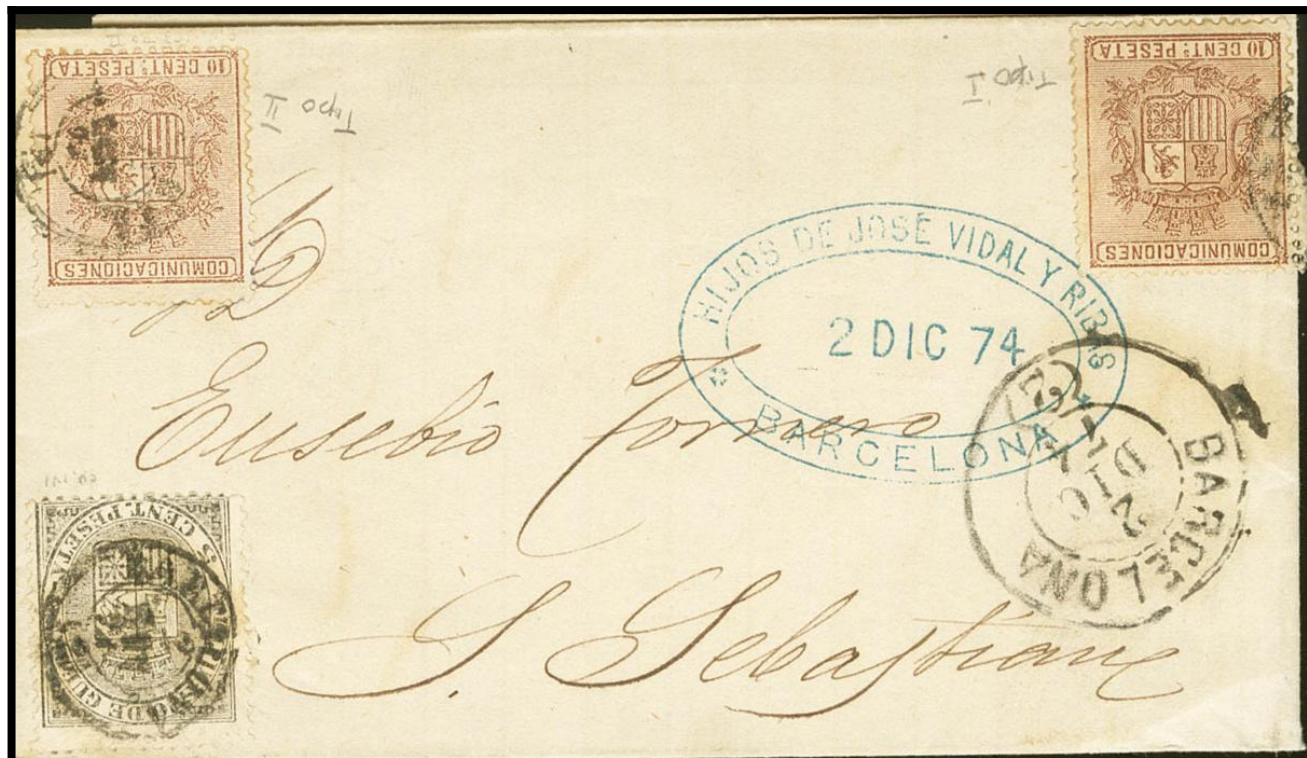 10 CENT.S PESETA
COMUNICACIONES
Tipo II
10 CENT.S PESETA
COMUNICACIONES
Tipo I
HIJOS DE JOSÉ VIDAL Y RIBAS
2 DIC 74
BARCELONA
BARCELONA
2
DIC
74
Eusebio Tornero
S. Sebastian
5 CENT. PESETA
IMPUESTO DE GUERRA